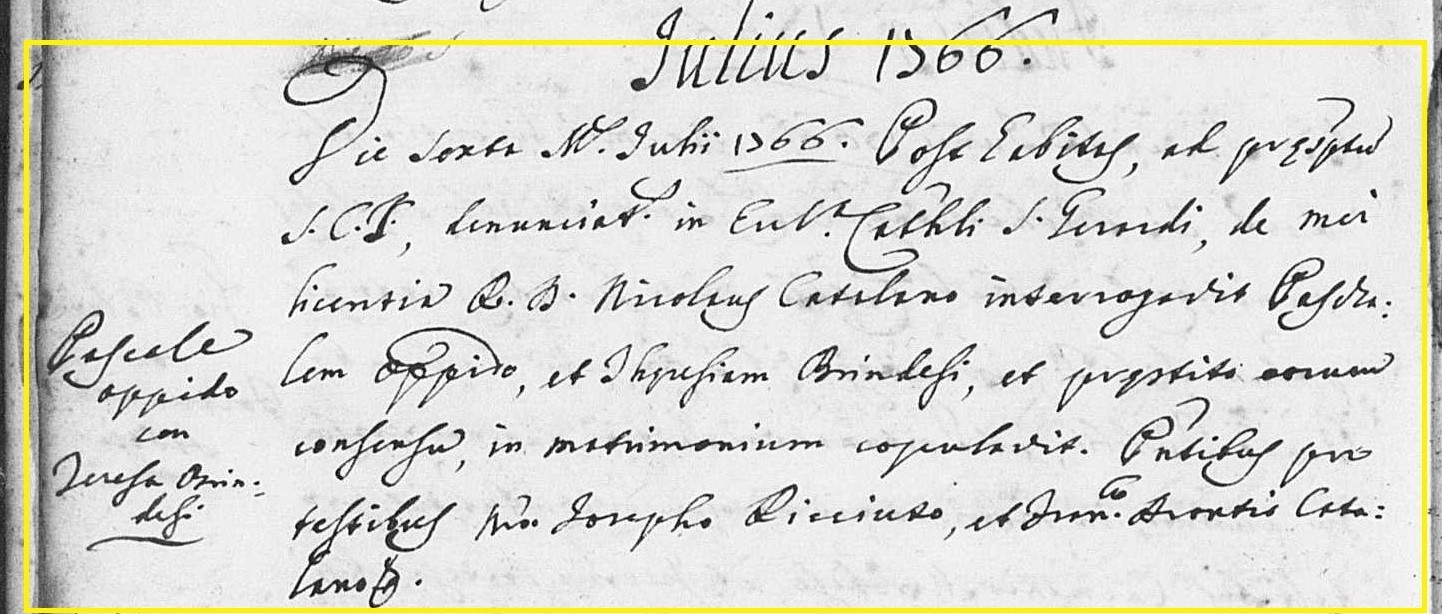 Julius 1766.
Die sexta Ms. Julii 1766. Post habitas, ad pręsptū
S.C.T., denunciat. in Eccl.ª Cathli S. Gerardi, de mei
licentia R. D. Nicolaus Catalano interrogavit Pascha:
lem Oppido, et Theresiam Brindesi, et pręstito eorum
consensu, in matrimonium copulavit. Pntibus pro
testibus Mro. Josepho Ricciuto, et Fran.co Arontio Cata:
lano
Pascale
oppido
con
Teresa Brin:
desi